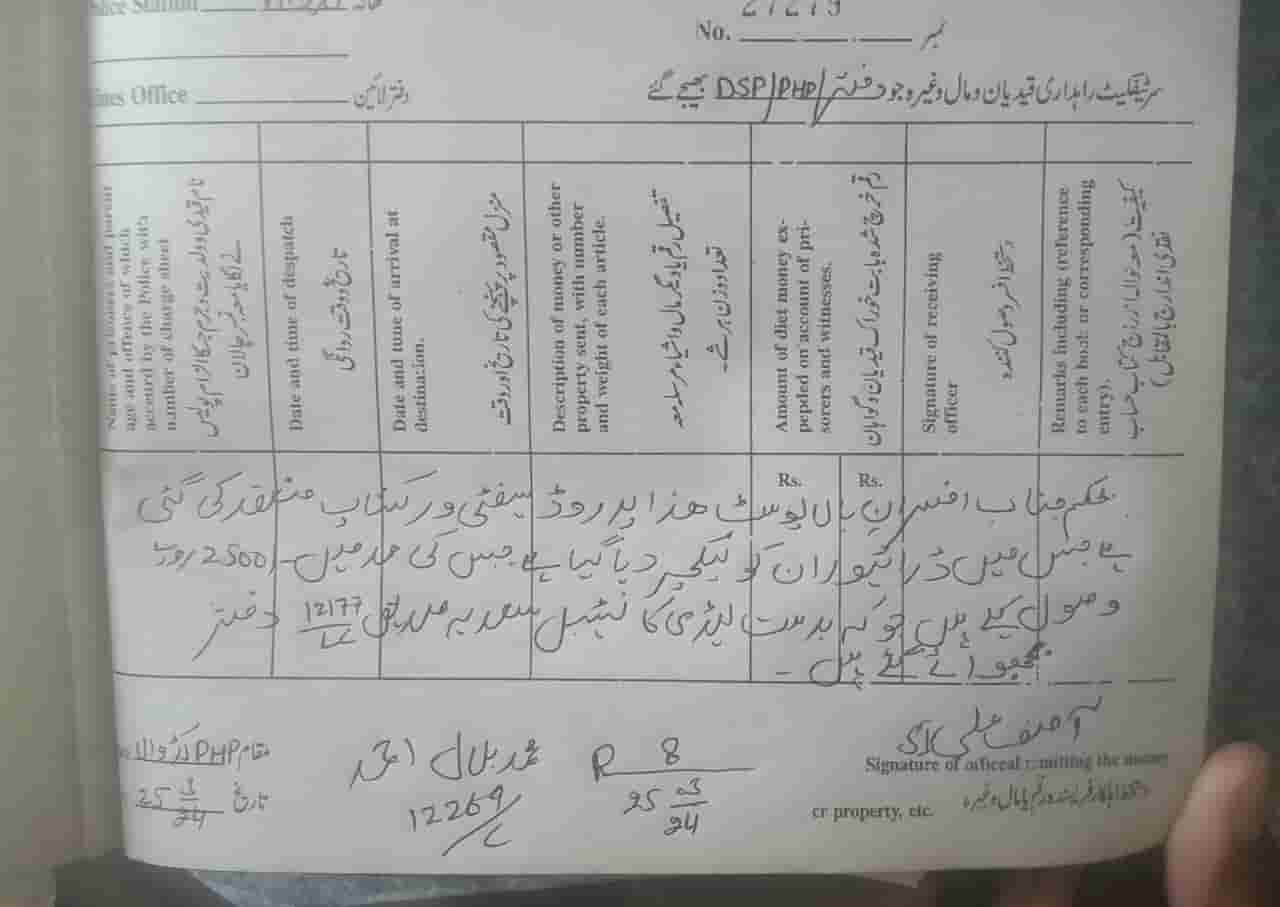 Police Station ______ تھانہ
No. ______ نمبر
Lines Office ______ دفتر لائین
سرٹیفکیٹ راہداری قیدیان و مال وغیرہ جو دفتر DSP/PHP بھیجے گئے
Name of prisoners and parent
age and offence of which
accused by the Police with
number of charge sheet
نام قیدی و ولدیت و جرم جس کا الزام پولیس
نے لگایا معہ نمبر چالان
Date and time of despatch
تاریخ و وقت روانگی
Date and time of arrival at
destination.
منزل مقصود پر پہنچنے کی تاریخ اور وقت
Description of money or other
property sent, with number
and weight of each article.
تفصیل رقم یا دیگر مال و اشیاء مرسلہ معہ
تعداد و وزن ہر شے۔
Amount of diet money ex-
pepded on account of pri-
sorers and witnesses.
رقم خرچ شدہ بابت خوراک قیدیان و گواہان
Signature of receiving
officer
دستخط افسر وصول کنندہ
Remarks including (reference
to each book or corresponding
entry).
کیفیت (معہ حوالہ اندراج کتاب حساب
نقدی اندراج بالمقابل)
Rs. Rs.
بحکم جناب افسران بالا پوسٹ ھذا پر روڈ سیفٹی ورکشاپ منعقد کی گئی
ہے جس میں ڈرائیوران کو لیکچر دیا گیا ہے جس کی مد میں -/2500 روپے
وصول کیے ہیں جو کہ بدست لیڈی کانسٹیبل سعدیہ صدیق 12177/L دفتر
بھجوائے گئے ہیں۔
آصف علی
Signature of officeal remitting the money
cr property, etc.
دستخط اہلکار فریسندہ رقم یا مال وغیرہ
R 8
25 03/24
محمد بلال احمد
12269/L
مقام PHP
تاریخ 25 3/24